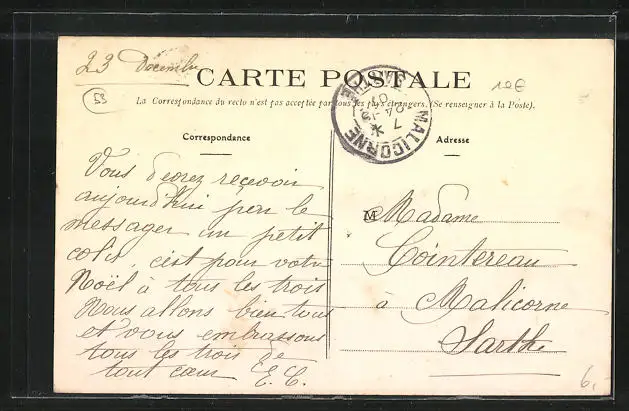 23 Decembre
CARTE POSTALE
10€
53
La Correspondance du recto n'est pas acceptée par tous les pays étrangers. (Se renseigner à la Poste).
MALICORNE
SARTHE
7 *
24 - 12
Correspondance
Vous devez recevoir
aujourd'hui par le
messager un petit
colis, c'est pour votre
Noël à tous les trois
Nous allons bien tous
et vous embrassons
tous les trois de
tout cœur E. C.
Adresse
M Madame
Cointereau
à Malicorne
Sarthe
6,-